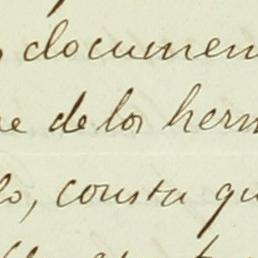 documen
de los her
lo, consta qu